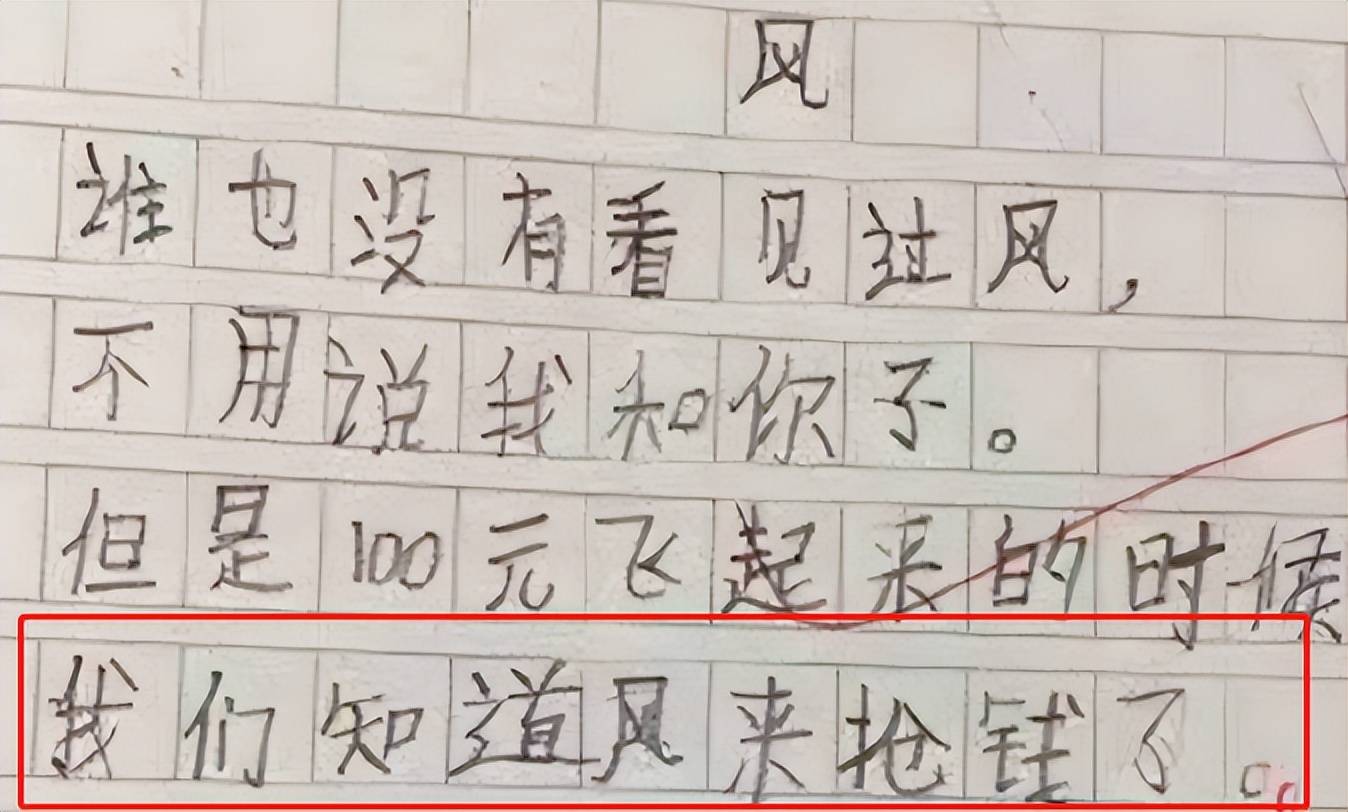 风
谁也没有看见过风，
不用说我和你了。
但是100元飞起来的时候
我们知道风来抢钱了。